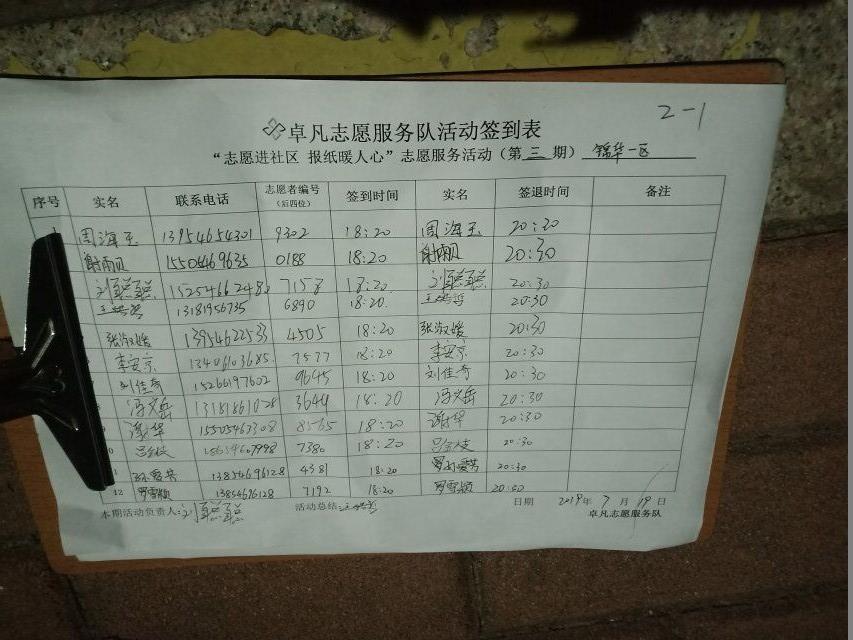 2-1
卓凡志愿服务队活动签到表
“志愿进社区 报纸暖人心”志愿服务活动（第三期）锦华一区
序号 实名 联系电话 志愿者编号（后四位） 签到时间 实名 签退时间 备注
周海玉 13954654301 9302 18:20 周海玉 20:30
谢雨贝 15505469635 0188 18:20 谢雨贝 20:30
刘聪聪 15254662482 7158 18:20 刘聪聪 20:30
13181956735 6890 18:20 20:30
张淑媛 13954622533 4505 18:20 张淑媛 20:30
李安京 13406103685 7577 18:20 李安京 20:30
刘佳奇 15266197602 9645 18:20 刘佳奇 20:30
冯义岳 13181861028 3644 18:20 冯义岳 20:30
谢华 15505463308 8565 18:20 谢华 20:30
7380 18:20 20:30
13854696128 4381 18:20 20:30
12 罗雪颖 13854696128 7192 18:20 罗雪颖 20:30
本期活动负责人：刘聪聪 活动总结： 日期 2019年7月19日
卓凡志愿服务队